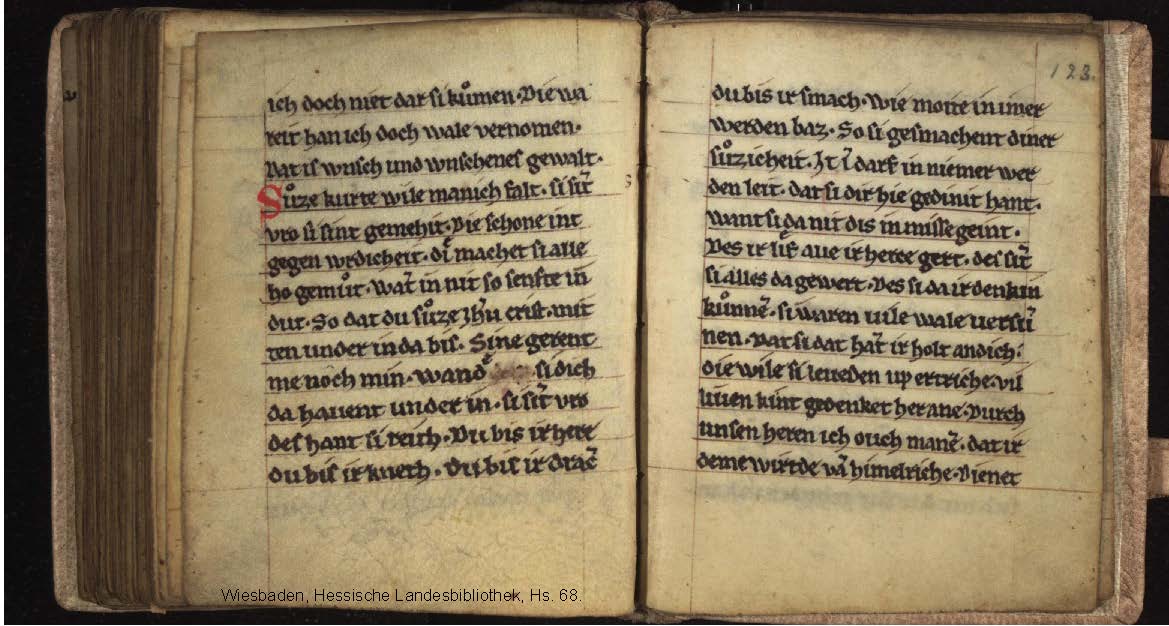 ich doch niet dar si kůmen · Die wa
reit han ich doch wale vernomen ·
Dat is wnsch und wnschenes gewalt ·
Sůze kurte wile manich falt · si sīt
vro si sint gemehit · Die schone int
gegen wrdicheit · machet si alle
ho gemůt · wat in nit so senfte in
dut · So dat du sůze ihū crist · mit
ten under in da bis · Sine gerent
me noch min · wand si dich
da havent under in · si sīt vro
des hant si reich · Du bis ir herre
du bis ir knech · Du bis ir drāc
123.
du bis ir smach · wie moite in imer
werden baz · So si gesmachent diner
sůzicheit · It darf in niemer wer
den leit · dat si dir hie gedinit hant ·
want si da nit dis in misse geint ·
Des ir lif ave ir herce gert · des sīt
si alles da gewert · Des si da irdenkin
kůnnē · si waren vile wale versū
nen · Dat si dat hat ir holt an dich ·
die wile si leveden up ertriche · vil
liven kint gedenket her ane · Durch
unsen heren ich ouch manē · dat ir
deme wirtde vā himelriche · Dienet
Wiesbaden, Hessische Landesbibliothek, Hs. 68.